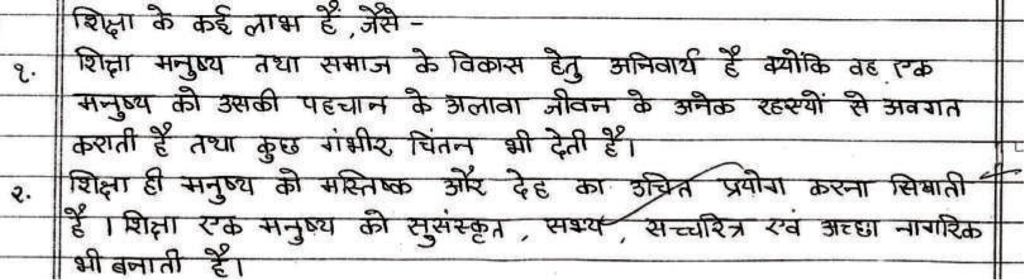 शिक्षा के कई लाभ हैं, जैसे -
१. शिक्षा मनुष्य तथा समाज के विकास हेतु अनिवार्य है क्योंकि वह एक
मनुष्य को उसकी पहचान के अलावा जीवन के अनेक रहस्यों से अवगत
कराती है तथा कुछ गंभीर चिंतन भी देती है।
२. शिक्षा ही मनुष्य को मस्तिष्क और देह का उचित प्रयोग करना सिखाती
है । शिक्षा एक मनुष्य को सुसंस्कृत, सभ्य, सच्चरित्र एवं अच्छा नागरिक
भी बनाती है।